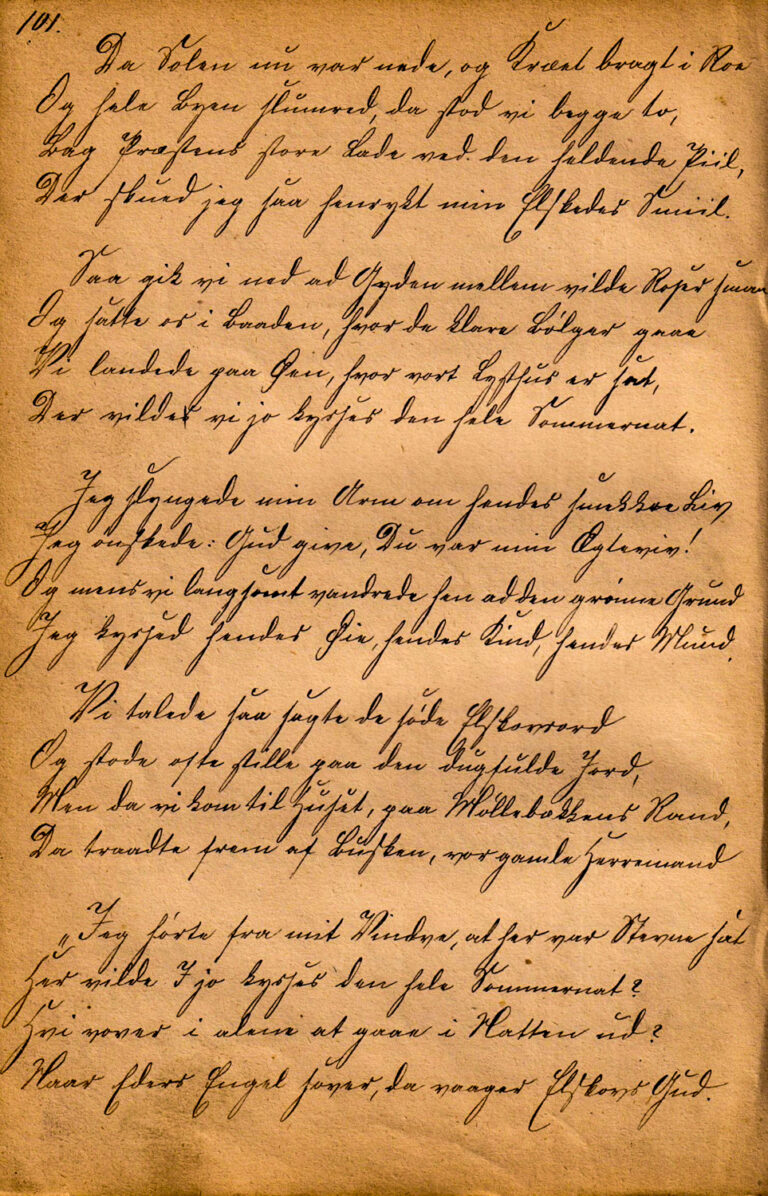 101.
Da Solen nu var nede, og Kræet bragt i Roe
Og hele Byen slumred, da stod vi begge to,
Bag Præstens store Lade ved den heldende Piil,
Der skued jeg saa henrykt min Elskedes Smiil.
Saa gik vi ned ad Gyden mellem vilde Roser smaa
Og satte os i Baaden, hvor de klare Bølger gaae
Vi landede paa Øen, hvor vort Lysthus er sat,
Der vilde vi jo kysses den hele Sommernat.
Jeg slyngede min Arm om hendes smekkre Liv
Jeg ønskede: Gud give, Du var min Ægteviv!
Og mens vi langsomt vandrede hen ad den grønne Grund
Jeg kyssed hendes Øie, hendes Kind, hendes Mund.
Vi talede saa sagte de søde Elskovsord
Og stode ofte stille paa den dugfulde Jord,
Men da vi kom til Huset, paa Møllebækkens Rand,
Da traadte frem af Busken, vor gamle Herremand
„Jeg hørte fra mit Vindve, at her var Stevne sat
Her vilde I jo kysses den hele Sommernat?
Hvi vover i alene at gaae i Natten ud?
Naar Eders Engel sover, da vaager Elskovs Gud.